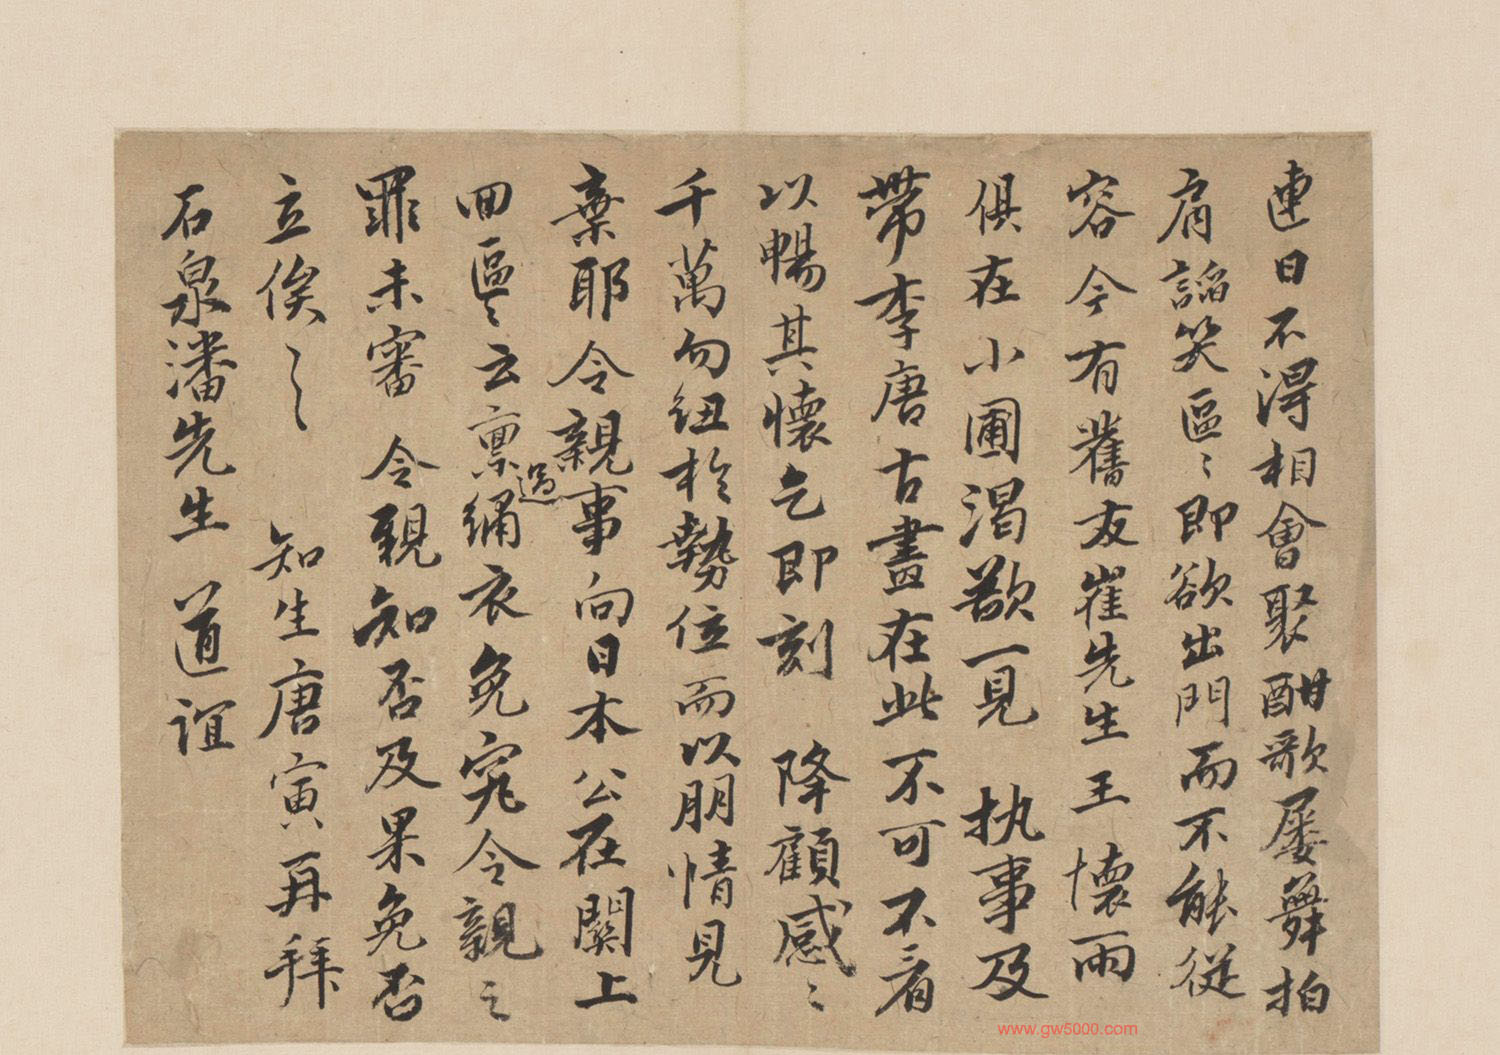 連日不得相會聚酣歌屡舞拍
肩謟笑區〻即欲出門而不能從
容今有舊友崔先生王懷雨
俱在小圃渴欲一見 执事及
帶李唐古畫在此不可不看
以暢其懷乞即刻 降顧感〻
千萬勿紐於勢位而以朋情見
棄耶令親事向日本公在闗上
回區〻云禀過縛衣免究令親之
罪未審 令親知否及果免否
立俟〻〻 知生唐寅再拜
石泉潘先生 道誼
www.gw5000.com